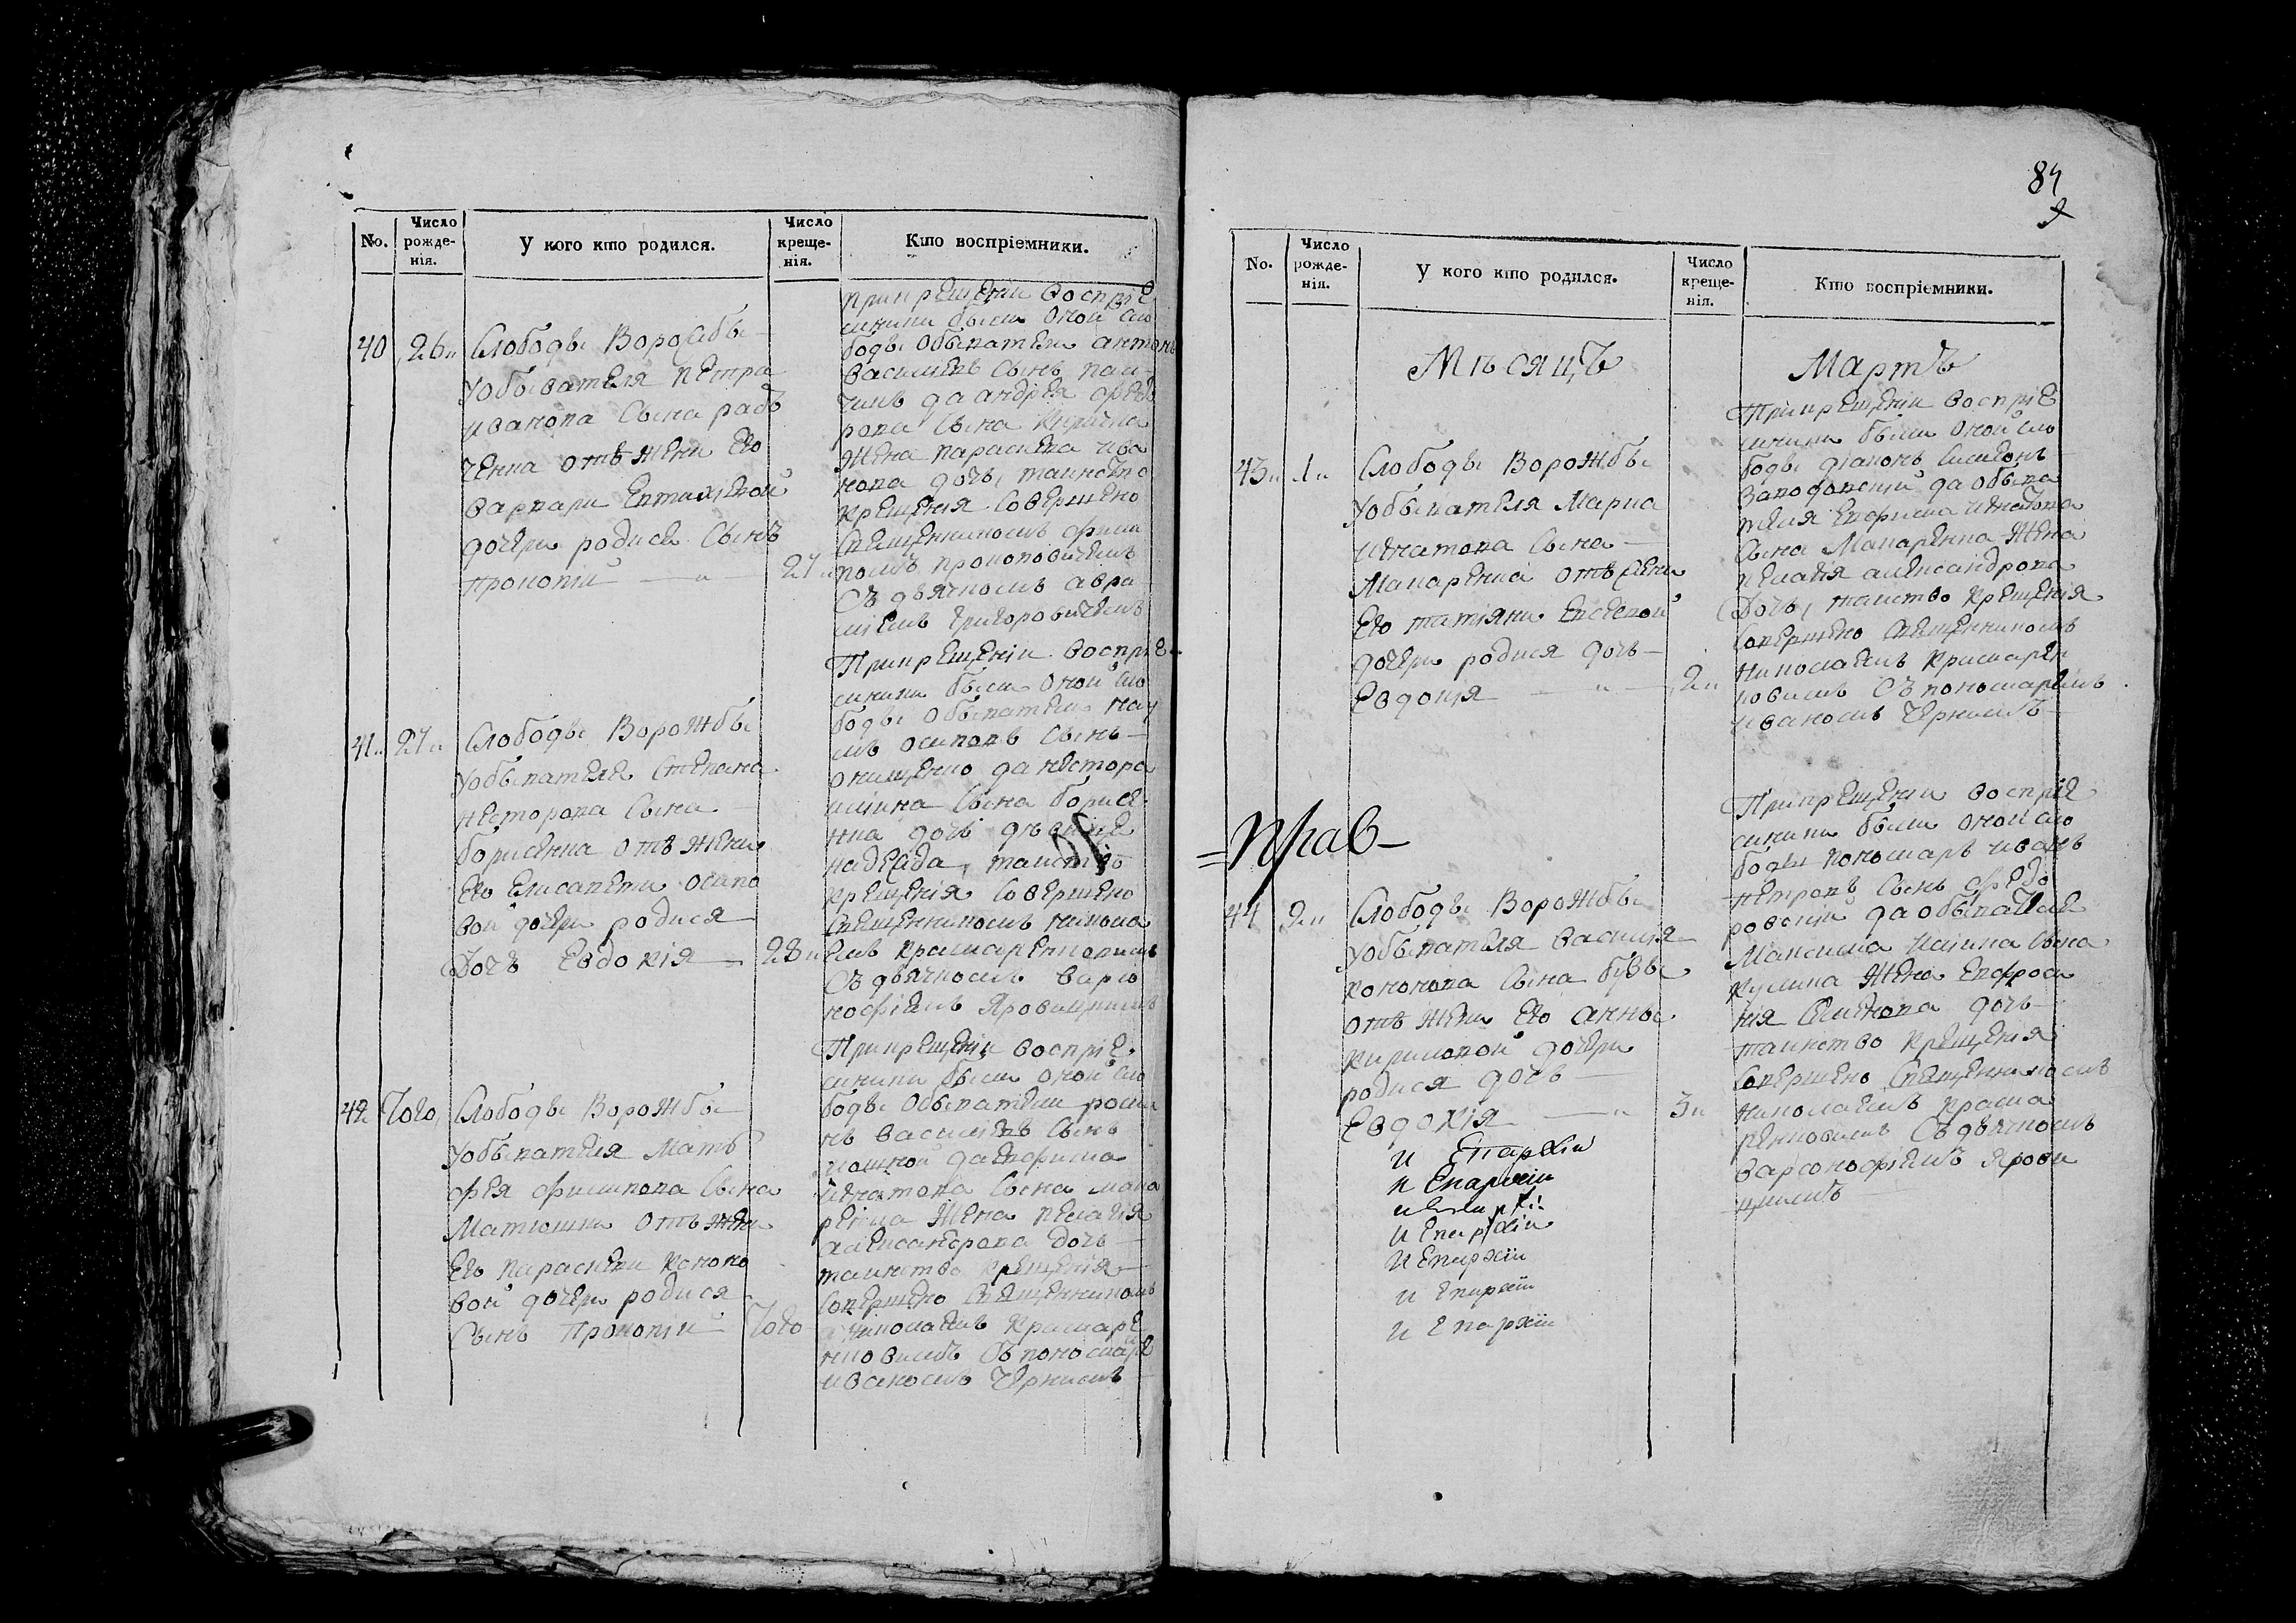 No.
Число рожде-нія.
У кого кто родился.
Число креще-нія.
Кто воспріемники.
40
26
Слободы Ворожбы
уобывателя Петра
иванова Сына рад
ченка отъ жены Его
варвары Евтихіевой
дочери родися Сынъ
Прокопій
27
при крещеніи воспріе
мники были оной сло
боды обыватели антонъ
васильевъ Сынъ
да андрея федо
рова Сына
жена параскева ива
нова дочь, таинство
крещенія совершено
Священникомъ фили
помъ прокоповичемъ
Съ дьячкомъ авра
міемъ григоровичемъ
41
27
Слободы Ворожбы
уобывателя Стефана
несторова Сына
борисенка отъ жены
Его Елисаветы осипо
вой дочери родися
Дочь Евдокія
28
При крещеніи воспріе
мники были оной сло
боды обыватели нау
мъ осиповъ Сынъ
онищенко да нестора
Сына борисе
нка дочь девица
надежда, таинство
крещенія совершено
Священникомъ никола
емъ крамаренковымъ
Съ дьячкомъ варсо
нофіемъ Яровицкимъ
42
Того
Слободы Ворожбы
уобывателя Мать
фея филипова Сына
Матюшки отъ жены
Его Параскевы Конono
вой дочери родися
Сынъ Прокопій
Того
При крещеніи воспріе
мники были оной сло
боды обыватели рома
нъ васильевъ Сынъ
да евфима
игнатова Сына мака
ренка жена пелагія
александрова дочь
таинство крещенія
совершено Священникомъ
николаемъ крамаре
нковымъ Съ пономаре
иваномъ Чернымъ
84
No.
Число рожде-нія.
У кого кто родился.
Число креще-нія.
Кто воспріемники.
Мѣсяцъ
Мартъ
43
1
Слободы Ворожбы
уобывателя Марка
игнатова Сына
Макаренка отъ жены
Его татіяны Евсеевой
дочери родися дочь
Евдокія
2
При крещеніи воспріе
мники были оной сло
боды діаконъ Симеонъ
да обыва
теля Евфима игнатова
Сына Макаренка жена
пелагія александрова
Дочь, таинство крещенія
совершено Священникомъ
николаемъ крамарен
ковымъ Съ пономаремъ
иваномъ Чернымъ
=прав-
44
2
Слободы Ворожбы
уобывателя василія
кононова Сына бузы
отъ жены Его анны
кириловой дочери
родися дочь
Евдокія
3
При крещеніи воспріе
мники были оной сло
боды пономарь иванъ
петровъ Сынъ федо
ровскій да обывателя
Максима Сына
жена Евфроси
нія Семенова дочь
таинство крещенія
совершено Священникомъ
николаемъ крама
ренковымъ Съ дьячкомъ
варсонофіемъ Ярови
цкимъ
и Епархіи
и Епархіи
и Епархіи
и Епархіи
и Епархіи
и Епархіи